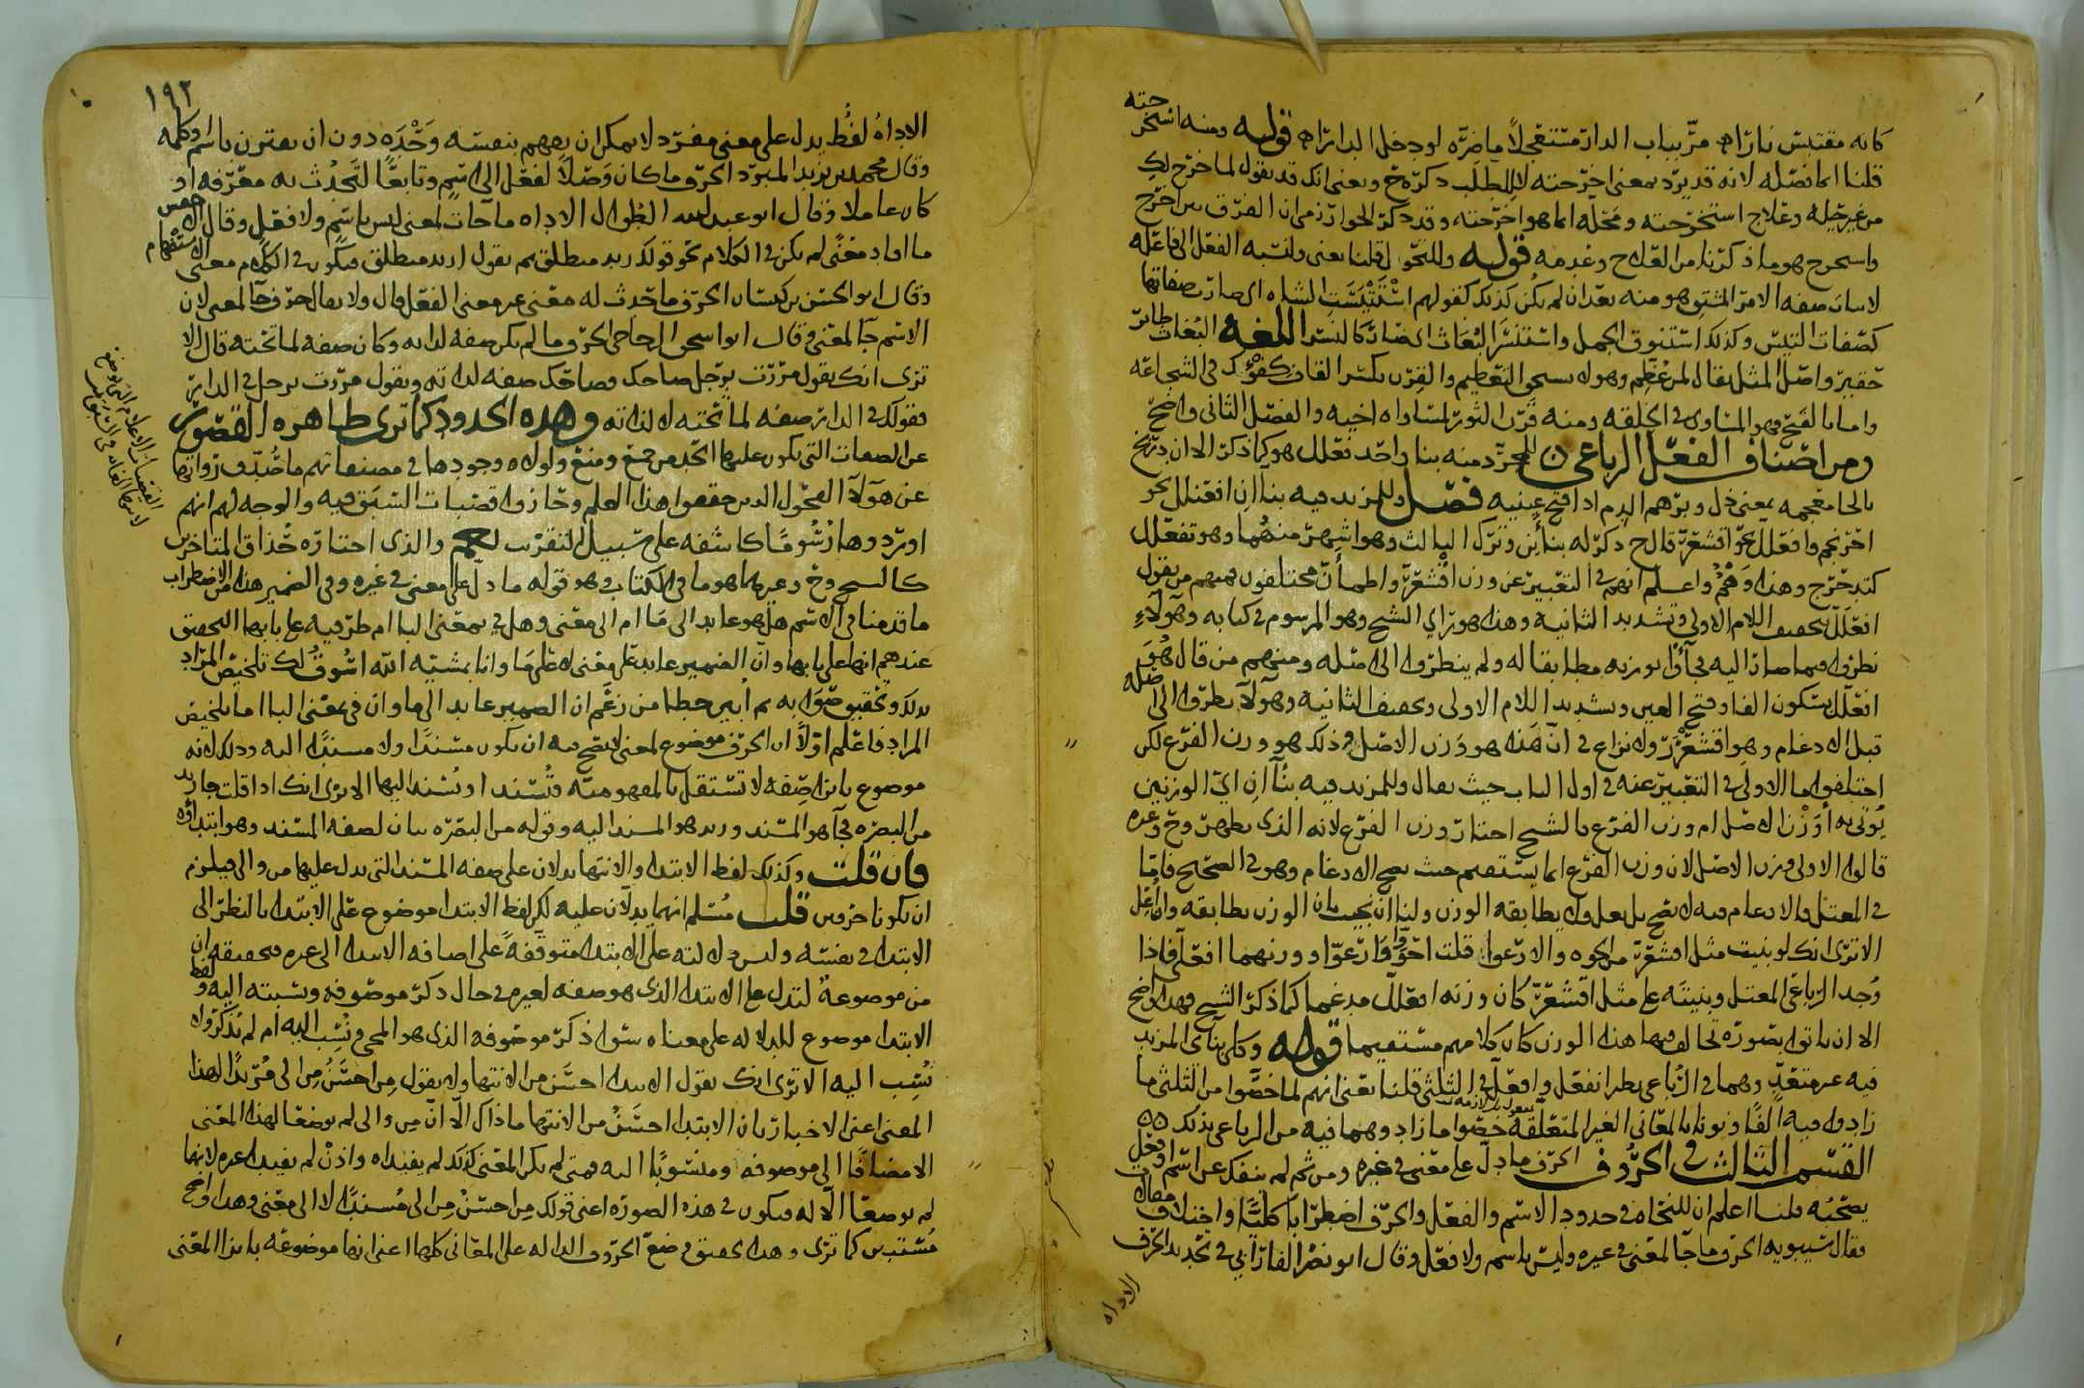 كانه مقتبس نارًا مرَّ بباب الدار مستعجلاً ماضرَّه لو دخل الدارا قوله ومنه استخرجته
قلنا انما فصله لانه قد يرد بمعنى اخرجته لا للطلب ذكره خ ويعنى انك قد تقول لما خرج لك
من غير حيله وعلاج استخرجته ومحله انما هو اخرجته وقد ذكر الخوارزمى ان الفرق بين اخرج
واستخرج هو ما ذكرنا من العلاج وعدمه قوله وللتحول قلنا يعنى ولنسبه الفعل الى فاعله
لا بيان صفه الامر المشتق هو منه بعد ان لم يكن كذلك كقولهم استتيست الشاه اى صارت صفاتها
كصفات التيس وكذلك استنوق الجمل واستنسر البغاث اى صار كالنسر اللغه البغاث طائر
حقير واصل المثل يقال لمن عظم وهو لا يستحق التعظيم والقرن بكسر القاف كفؤك فى الشجاعه
واما بالفتح فهو المساوى فى الخلقه ومنه قرن الثور لمساواه اخيه والفصل الثانى واضح
ومن اصناف الفعل الرباعى للمجرد منه بنا واحد فعلل هو كما ذكر الا ان دربخ
بالخا معجمه بمعنى ذل وبرهم الدم اذا فتح عينيه فصل وللمزيد فيه بنا ان افعنلل نحو
احرنجم وافعلل نحو اقشعر قال ح ذكر له بنائين وترك الثالث وهو اشهر منهما وهو تفعلل
كتدحرج وهذا وهم واعلم انهم فى التعبير عن وزن اقشعر واطمأن مختلفون فمنهم من يقول
افعلل بتخفيف اللام الاولى وتشديد الثانيه وهذا هو راى الشيخ وهو المرسوم فى كتابه وهولاء
نظروا فيما صار اليه فجاؤا بوزنه مطابقا له ولم ينظروا الى اصله ومنهم من قال هو
افعلل بسكون الفا وفتح العين وتشديد اللام الاولى وتخفيف الثانيه وهولا نظروا الى اصله
قبل الادغام وهو اقشعرر ولا نزاع فى ان هذا هو وزن الاصل وذلك هو وزن الفرع لكن
اختلفوا ما الاولى فى التعبير عنه فى اول الباب حيث يقال وللمزيد فيه بناان اى الوزنين
يوتى به أوزن الاصل ام وزن الفرع فالشيخ اختار وزن الفرع لانه الذى يظهر وخ وغيره
قالوا الاولى وزن الاصل لان وزن الفرع انما يستقيم حيث يصح الادغام وهو فى الصحيح فاما
فى المعتل فالادغام فيه لا يصح بل يعل ولا يطابقه الوزن ولنا ان نجيب بان الوزن يطابقه وان اعل
الا ترى انك لو بنيت مثل اقشعر من الحوه والارعوا قلت احوّا وارعوّا ووزنهما افعلّ فاذا
وجد الرباعى المعتل وبنيته على مثل اقشعرّ كان وزنه افعللّ مدغما كما ذكر الشيخ فهذا واضح
الا ان ياتوا بصوره تخالف فيها هذا الوزن كان كلامهم مستقيما قوله وكل بنآى المزيد
فيه غير متعدٍّ وهما فى الرباعى نظيرا انفعل وافعلّ فى الثلثى قلنا يعنى انهم لما خصوا من الثلثى ما
زادوا فيه الفًا ونونا بالمعانى الغير المتعلقه خصوا ما زادوهما فيه من الرباعى بذلك
القسم الثالث فى الحروف الحرف ما دل على معنى فى غيره ومن ثم لم ينفك عن اسم او فعل
يصحبه قلنا اعلم ان للنحاه فى حدود الاسم والفعل والحرف اضطرابا كليًّا واختلاف مقال
فقال سيبويه الحرف ما جا لمعنى فى غيره وليس باسم ولا فعل وقال ابو نصر الفارابى فى تحديد الحرف
الاداه
١٩٢
الاداهُ لفظ يدل على معنى مفرد لا يمكن ان يفهم بنفسه وَحْدَه دون ان يقترن باسم او كلمه
وقال محمد بن يزيد المبرد الحرف ما كان وَصْلاً لفعل الى اسم وتابعًا لتَحدُث به معرفه او
كان عاملا وقال ابو عبد الله الطوال الاداه ما جات لمعنى ليس باسم ولا فعل وقال الاخفش
ما افاد معنًى لم يكن فى الكلام نحو قولك زيد منطلق ثم تقول ازيد منطلق فيكون فى الكلام معنى الاستفهام
وقال ابو الحسن بن كيسان الحرف ما حدث له معنى غير معنى الفعل قال ولا يقال حرف جا لمعنى لان
الاسم جآ لمعنى وقال ابو اسحق الزجاجى الحرف ما لم يكن صفه لذاته وكان صفه لما تحته قال الا
ترى انك تقول مررت برجل ضاحك فضاحك صفه لذاته وتقول مررت برجل فى الدار
فقولك فى الدار صفه لما تحته لا لذاته وهذه الحدود كما ترى ظاهره القصور
عن الصفات التى يكون عليها الحد من جمع ومنع ولولا وجودها فى مصنفاتهم ما صُدّف رواتها
عن هولآ الفحول الذين حققوا هذا العلم وحازوا قصبات السبق فيه والوجه لهم انهم
اوردوها رُسُومًا كاشفه على سبيل التقريب لفهم والذى اختاره حُذاق المتاخرين
كالشيخ وخ وغيرهما هو ما فى الكتاب وهو قوله ما دل على معنى فى غيره وفى الضمير هذا من الاضطراب
ما قدمنا فى الاسم هل هو عايد الى مَا ام الى معنى وهل فى بمعنى البا ام ظرفيه على بابها التحقيق
عندهم انها على بابها وان الضمير عايد على معنى لا على ما وانا بمشيّه الله اسُوقُ لك تلخيص المراد
بذلك وتحقيق صوابه ثم أبين خطا من زعَم ان الضمير عايد الى ما وان فى بمعنى البا اما تلخيص
المراد فاعلم اولاً ان الحرف موضوع لمعنى لا يصح فيه ان يكون مسندًا ولا مسندًا اليه وذلك لانه
موضوع بازا صِفه لا تستقل بالمفهوميه وتُسند او يُسند اليها الا ترى انك اذا قلت جا زيد
من البصره فجآ هو المسند وزيد هو المسند اليه وقوله من البصره بيان لصفه المسند وهو ابتداؤه
فان قلت وكذلك لفظ الابتدا والانتها يدلان على صفه المسند التى يدل عليها من والى فيلزم
ان يكونا حرفين قلت مُسَلم انهما يدلآن عليه لكن لفظ الابتدا موضوع على الابتدا بالنظر الى
الابتدا فى نفسه وليس دلالته على الابتدا متوقفةً على اضافه الابتدا الى غيره فحقيقه ان
من موضوعه لتدل على الابتدا الذى هو صفه لغيره فى حال ذكر موصوفه ونسبته اليه ولفظ
الابتدا موضوع للدلاله على معناه سَوا ذكر موصوفه الذى هو المجى ونُسِب اليه أم لم يذكر ولا
نُسِب اليه الا ترى انك تقول الابتدا احسَن من الانتها ولا تقول مِن احسَنُ من الى مُريدًا لهذا
المعنى اعنى الاخبار بان الابتدا احسَنُ من الانتها وما ذاك الّا انّ مِن والى لم يوضعا لهذا المعنى
الا مضافًا الى موصوفه ومنسوبًا اليه فمتى لم يكن المعنى كذلك لم يفيداه واذنْ لم يفيدا غيره لانها
لم يوضعا الّا له فيكون فى هذه الصوره اعنى قولك مِن احسَنُ مِن الى مُسندًا لا الى معنى وهذا واضح
مُستبين كما ترى وهذا تحقيق وضع الحروف الداله على المعانى كلها اعنى انها موضوعه بازا المعنى